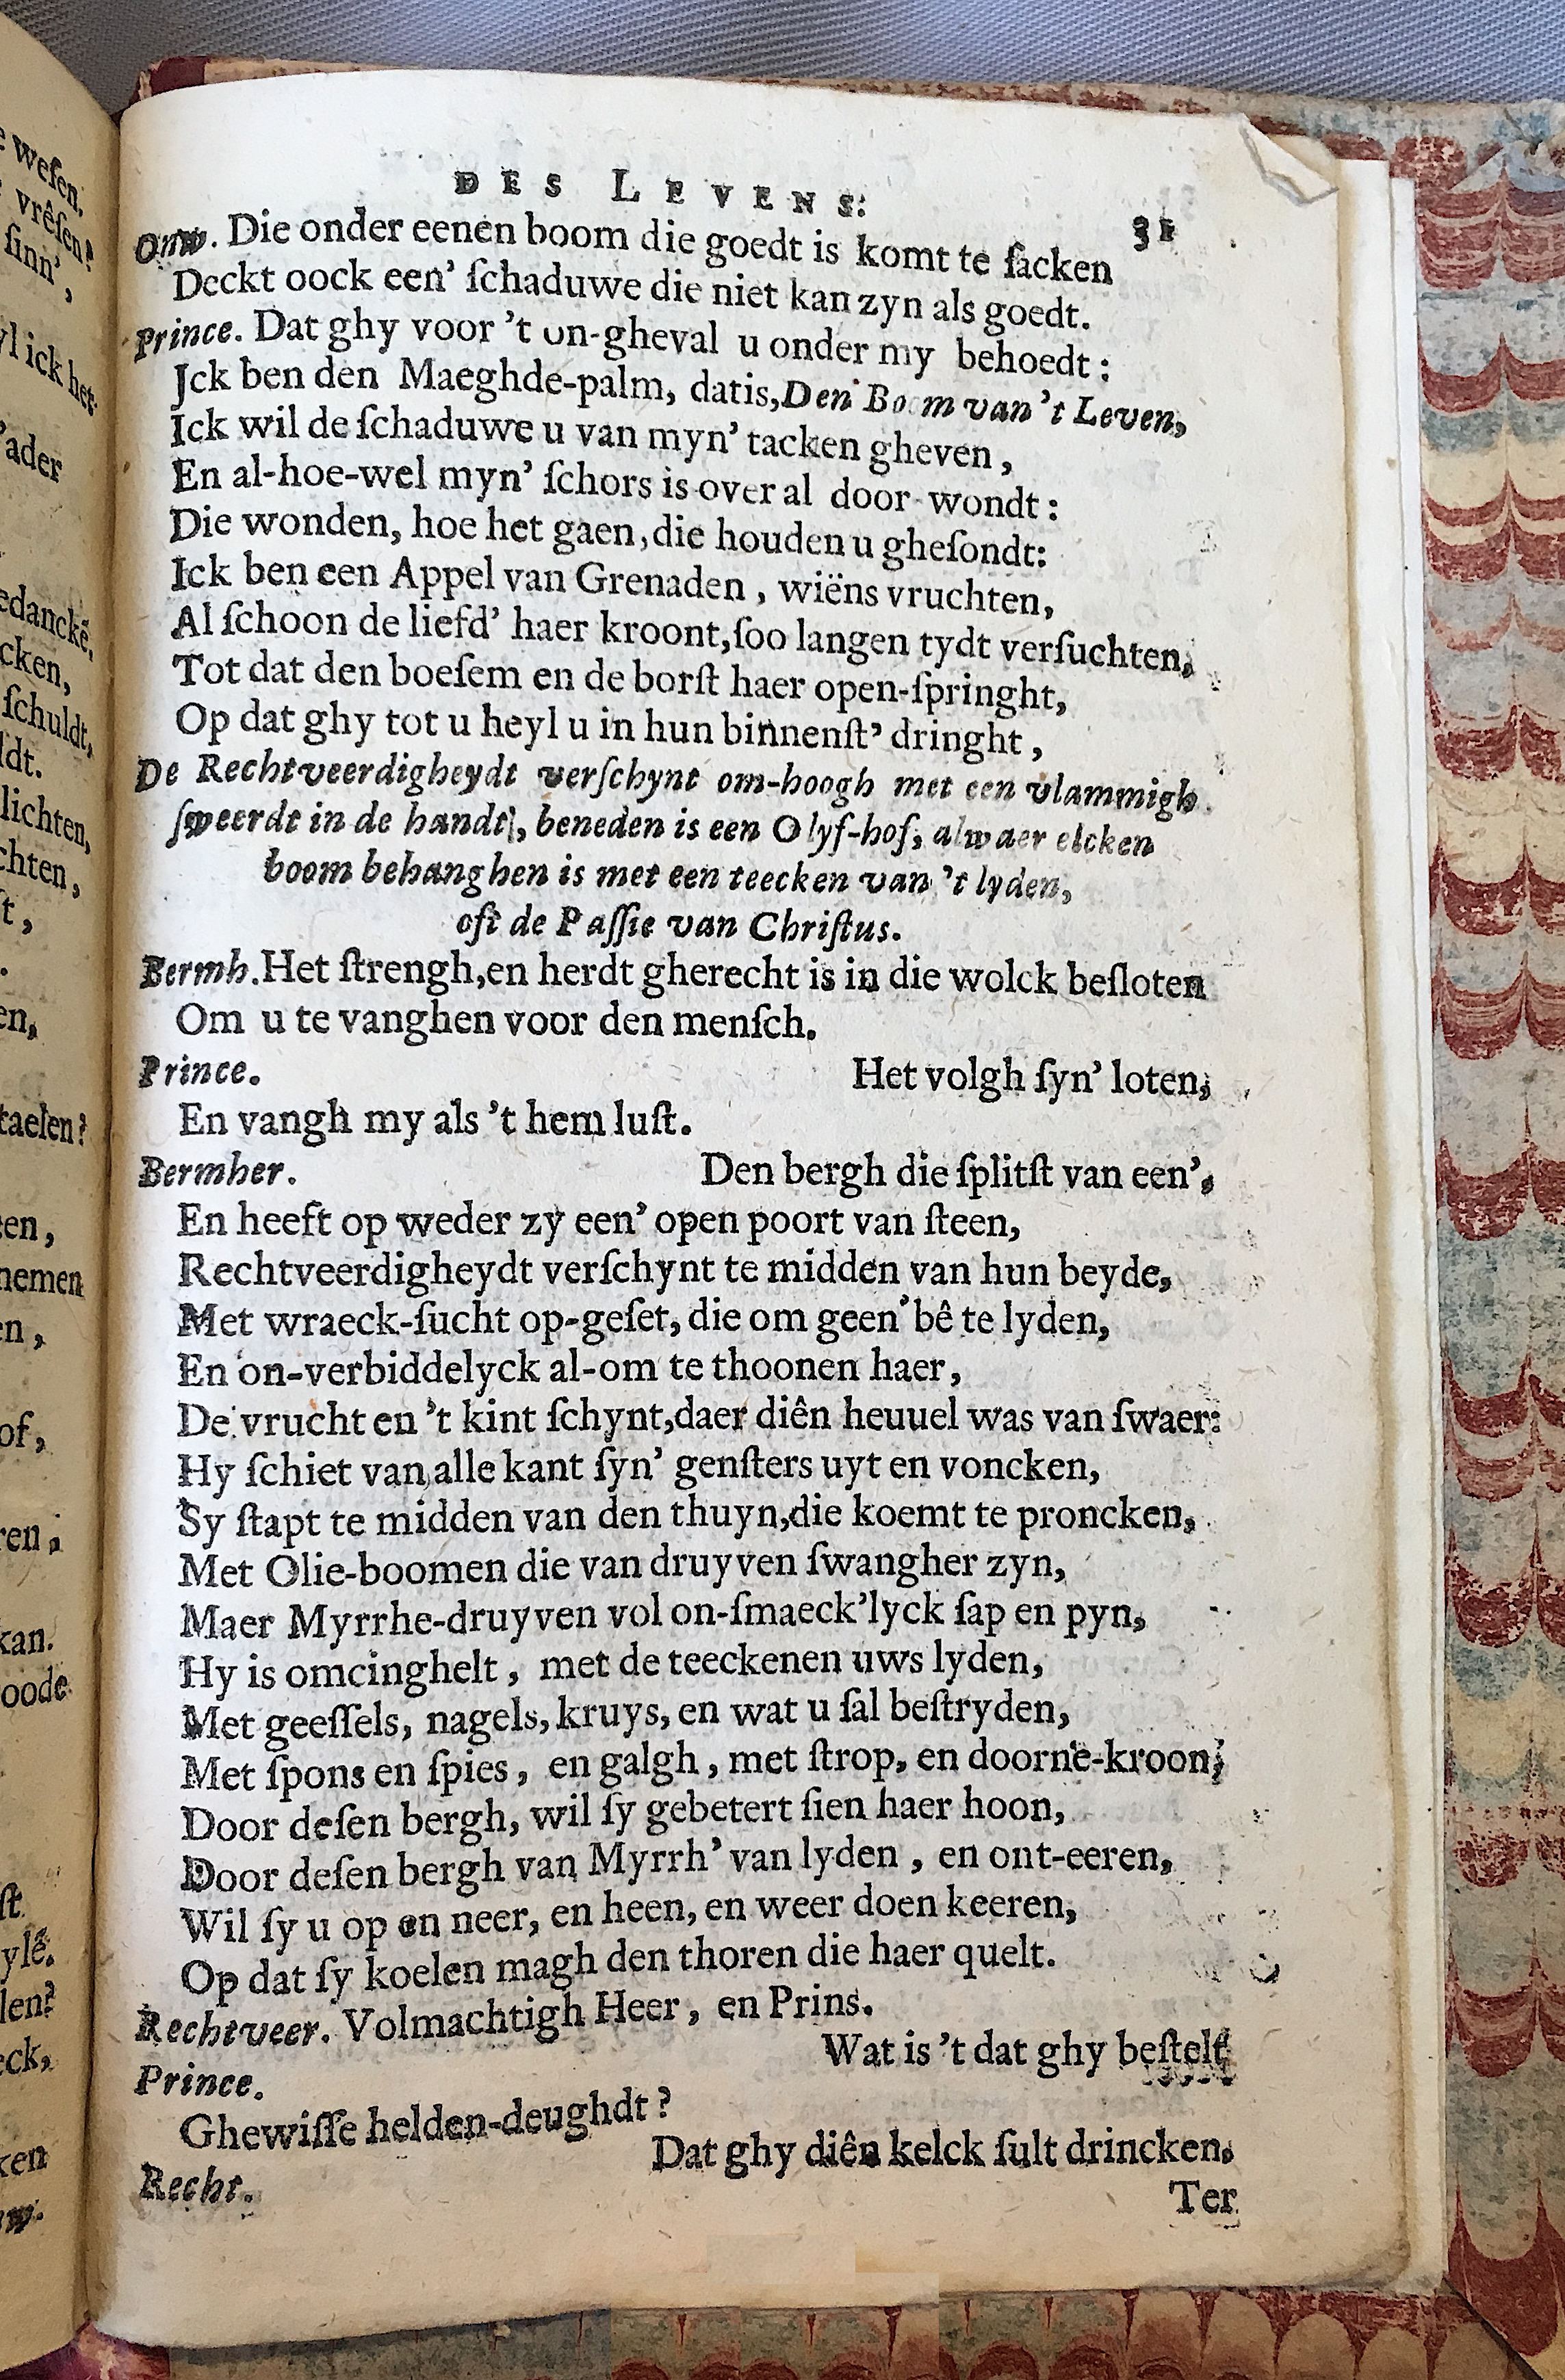 e wesen.
vrêsen?
sinn',
yl ick het
'ader
edanckē,
cken,
schuldt,
ldt.
lichten,
chten,
t,
en,
taelen?
en,
nemen
n,
of,
ren,
kan.
oode
st.
ylē.
len?
eck,
ken
DES LEVENS: 31
Onw. Die onder eenen boom die goedt is komt te ſacken
Deckt oock een' ſchaduwe die niet kan zyn als goedt.
Prince. Dat ghy voor 't on-gheval u onder my behoedt:
Jck ben den Maeghde-palm, datis, Den Boom van 't Leven,
Ick wil de ſchaduwe u van myn' tacken gheven,
En al-hoe-wel myn' ſchors is over al door-wondt:
Die wonden, hoe het gaen, die houden u gheſondt:
Ick ben een Appel van Grenaden, wiëns vruchten,
Al ſchoon de liefd' haer kroont, ſoo langen tydt verſuchten,
Tot dat den boeſem en de borſt haer open-ſpringht,
Op dat ghy tot u heyl u in hun binnenſt' dringht,
De Rechtveerdigheydt verſchynt om-hoogh met een vlammigh
ſweerdt in de handt, beneden is een Olyf-hof, alwaer elcken
boom behanghen is met een teecken van 't lyden,
oft de Paſſie van Chriſtus.
Bermh. Het ſtrengh, en herdt gherecht is in die wolck beſloten
Om u te vanghen voor den menſch.
Prince. Het volgh ſyn' loten,
En vangh my als 't hem luſt.
Bermher. Den bergh die ſplitſt van een',
En heeft op weder zy een' open poort van ſteen,
Rechtveerdigheydt verſchynt te midden van hun beyde,
Met wraeck-ſucht op-geſet, die om geen' bê te lyden,
En on-verbiddelyck al-om te thoonen haer,
De vrucht en 't kint ſchynt, daer diên heuuel was van ſwaer:
Hy ſchiet van alle kant ſyn' genſters uyt en voncken,
Sy ſtapt te midden van den thuyn, die koemt te proncken,
Met Olie-boomen die van druyven ſwangher zyn,
Maer Myrrhe-druyven vol on-ſmaeck'lyck ſap en pyn,
Hy is omcinghelt, met de teeckenen uws lyden,
Met geeſſels, nagels, kruys, en wat u ſal beſtryden,
Met ſpons en ſpies, en galgh, met ſtrop, en doorne-kroon,
Door deſen bergh, wil ſy gebetert ſien haer hoon,
Door deſen bergh van Myrrh' van lyden, en ont-eeren,
Wil ſy u op en neer, en heen, en weer doen keeren,
Op dat ſy koelen magh den thoren die haer quelt.
Rechtveer. Volmachtigh Heer, en Prins.
Prince. Wat is 't dat ghy beſtelt
Ghewiſſe helden-deughdt?
Recht. Dat ghy diên kelck ſult drincken.
Ter